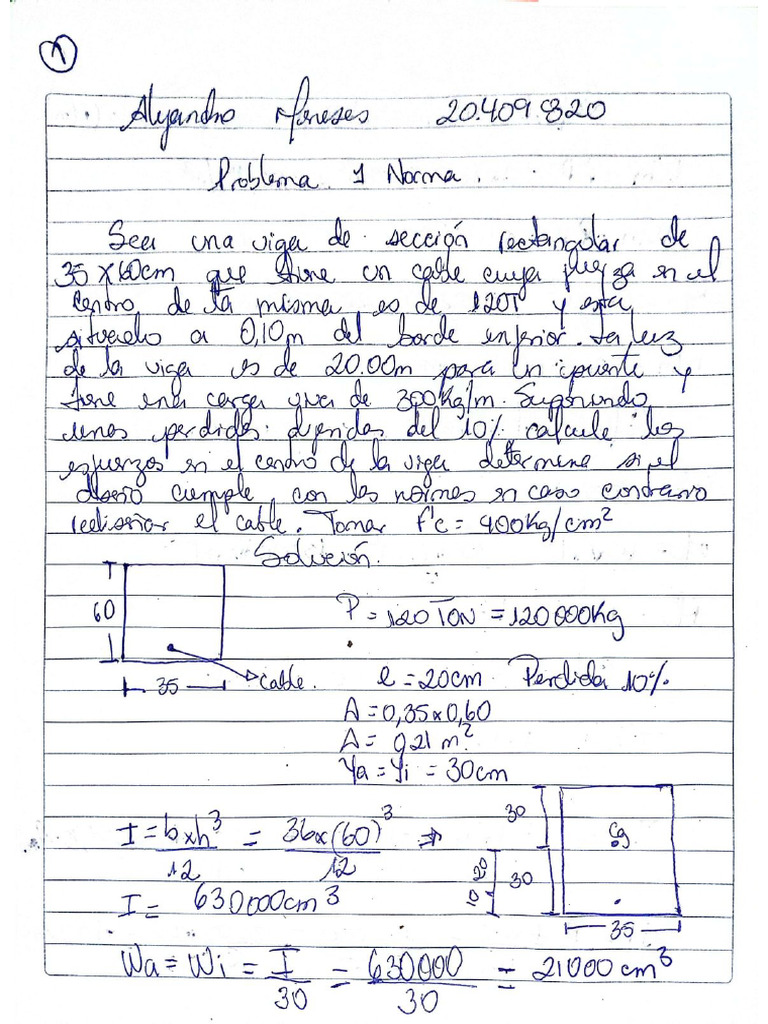 1
Alejandro Meneses 20.409.820
Problema 1 Norma.
Sea una viga de sección rectangular de
35x60cm que tiene un cable cuya fuerza en el
centro de la misma es de 120T y esta
situado a 0,10m del borde inferior. La luz
de la viga es de 20.00m para un puente y
tiene una carga viva de 300kg/m. Suponiendo
unas perdidas diferidas del 10% calcule los
esfuerzos en el centro de la viga determine si el
diseño cumple con las normas en caso contrario
rediseñar el cable. Tomar f'c = 400kg/cm²
Solución.
60
35
Cable.
P = 120 TON = 120000kg
e = 20cm Perdida 10%
A = 0,35x0,60
A = 0,21 m²
Ya = Yi = 30cm
I = bxh³/12 = 35x(60)³/12 ⇒
I = 630000cm³
30
30
20
10
Cg
35
Wa = Wi = I/30 = 630000/30 = 21000 cm³